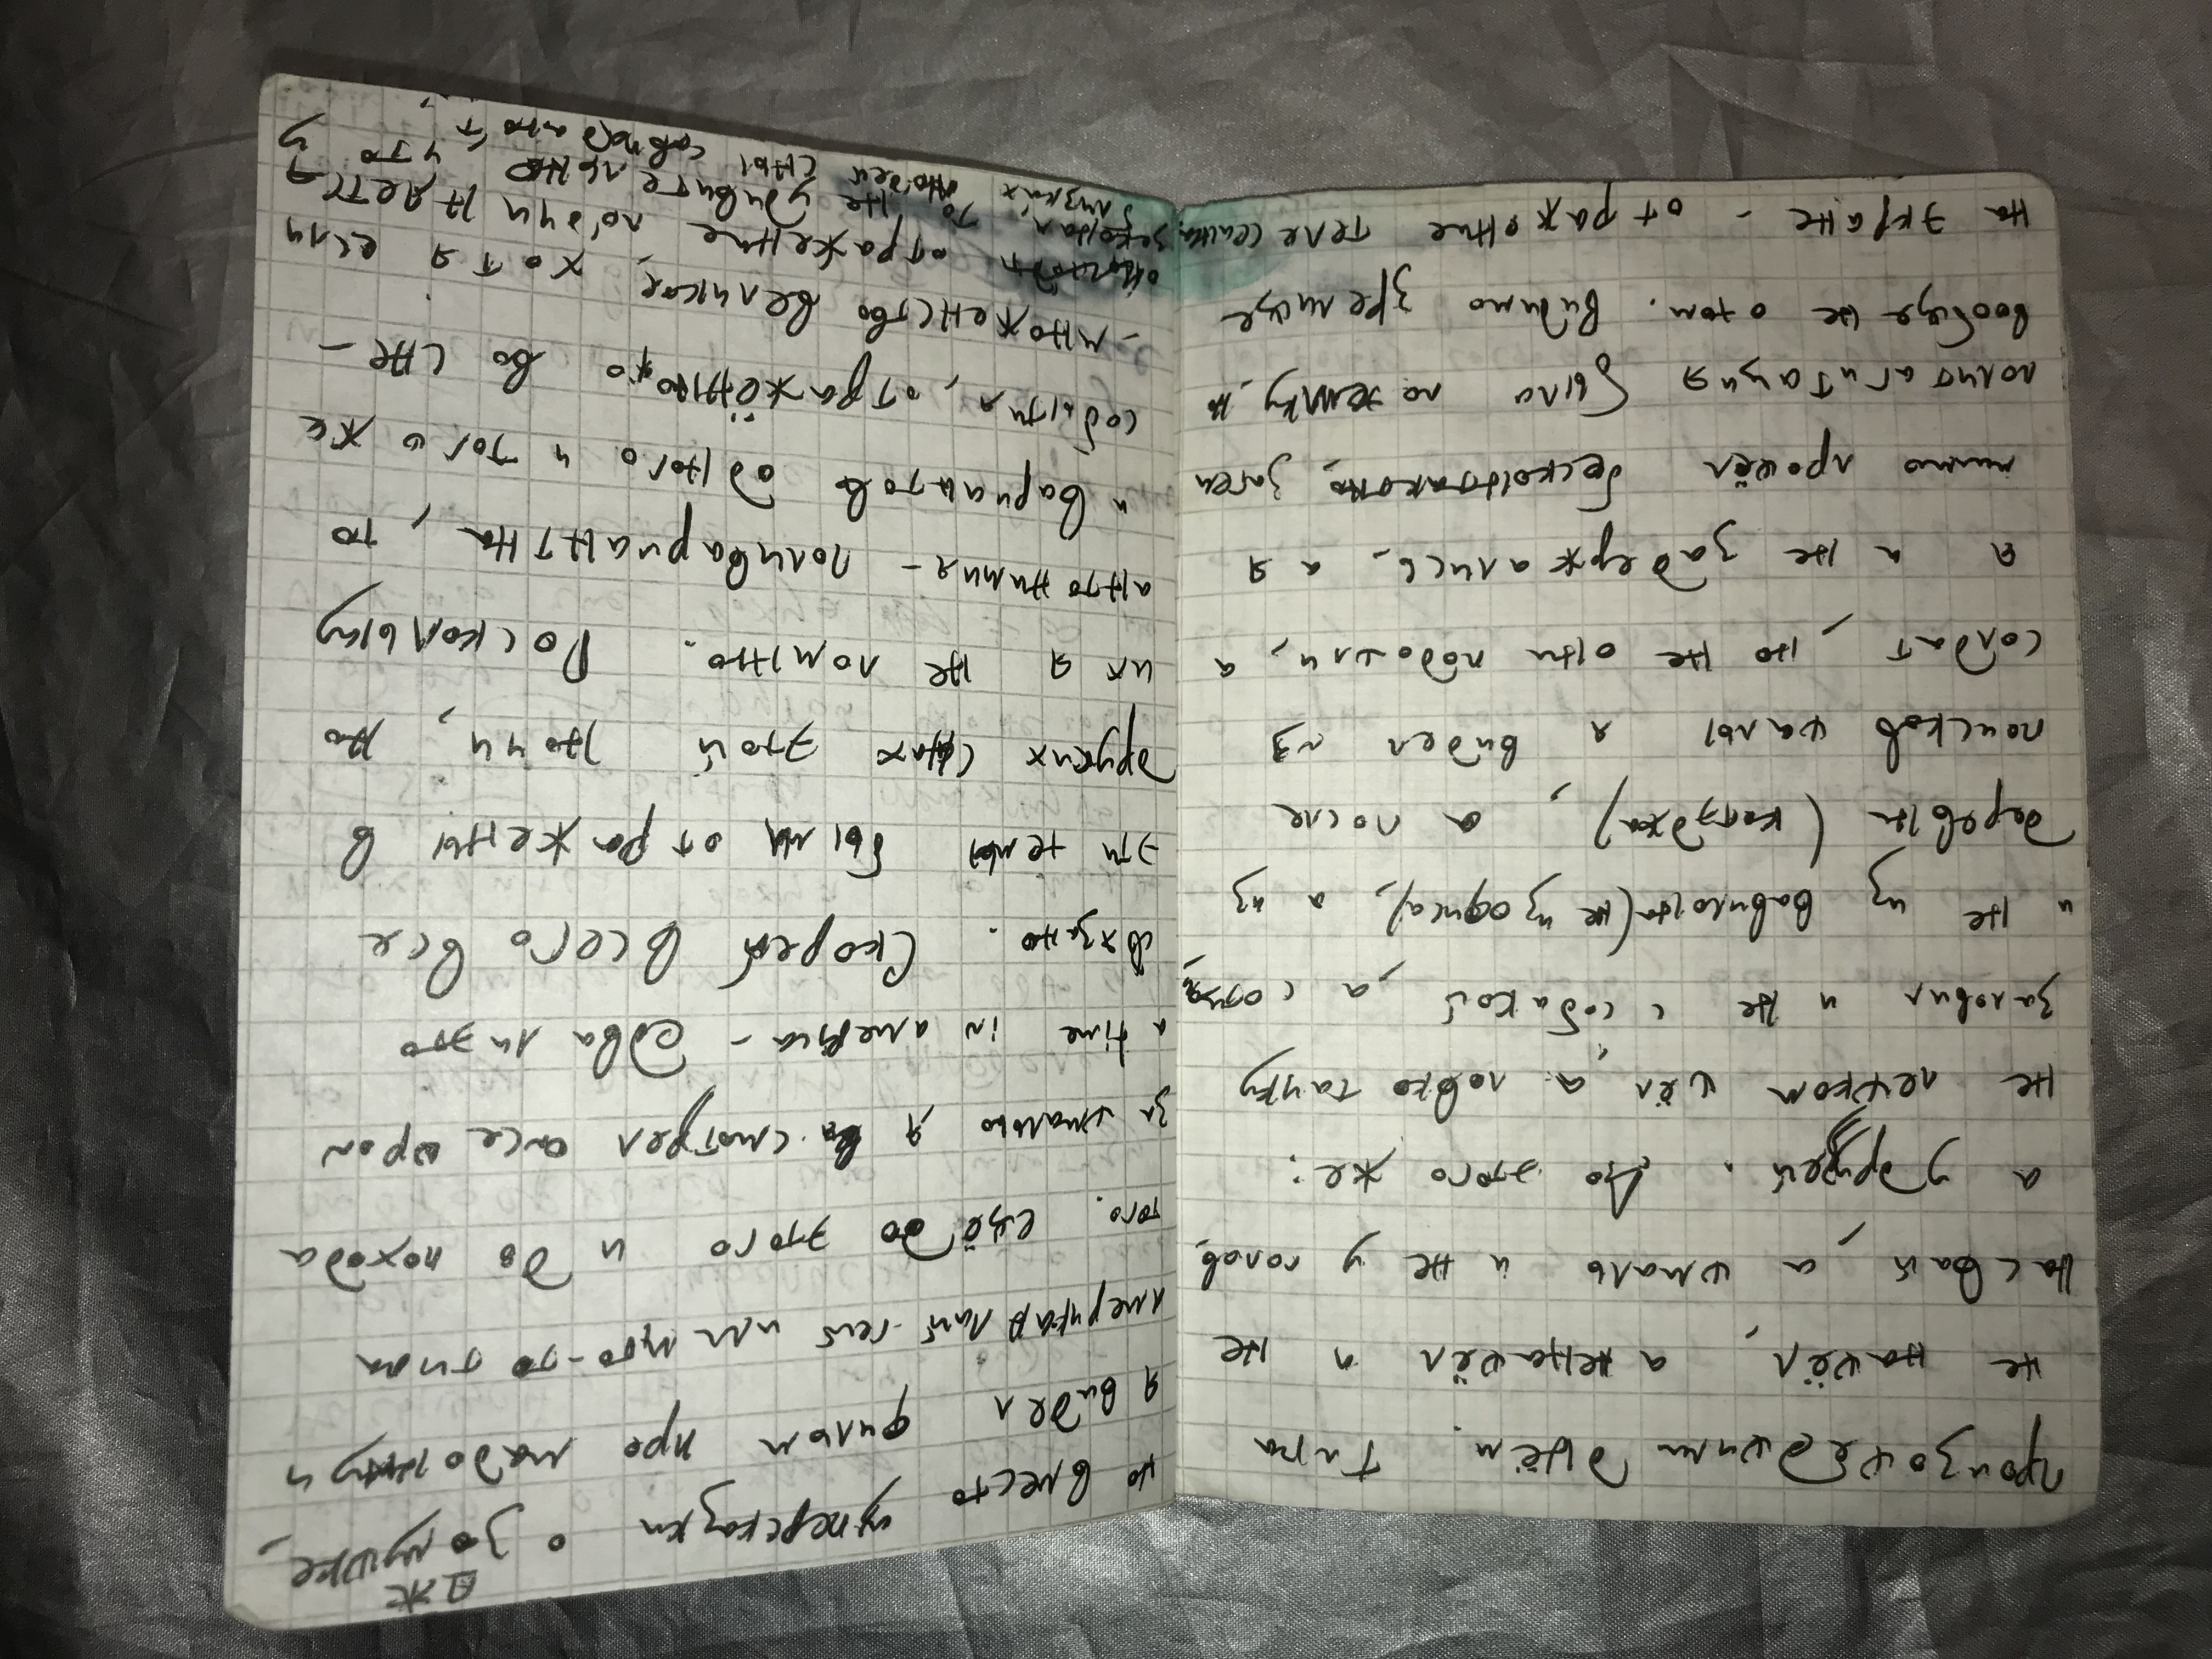 произошедшим днём. Типа
не нашёл, а ненашёл и не
насвай, а шмаль и не у голов,
а у друзей. До этого же:
не пешком шёл, а ловко тачку
заловил и не с собакой, а с отцом,
и не из вавилона (не из офиса), а из
деревни (котэджа), а после
поисков шалы я видел из
солдат, но не они подошли, а
я и не задержались, а я
мимо прошёл бесконтактно, затем
политагитация была по телику, но
вообще не о том. Видимо зрелище
на экране - отражение телесеанса,
дж
но вместо изперсказки о золушке,
я видел фильм про мадонну и
американ лайт-гей или что-то типа
того. Ещё до этого и до похода
за шмалью я смотрел онсе шпон
a time in america - едва ли это
связано. Скорей всего все
эти темы были отражены в
друких снах этой ночи, но
их я не помню. Поскольку
антонимия - поливариантна, то
и вариантов одного и того же
события, отражённого во сне -
- множенство великое, хотя если
отражение подчиняется
законам, то не удивительно, что у
близких людей сны совпадают.